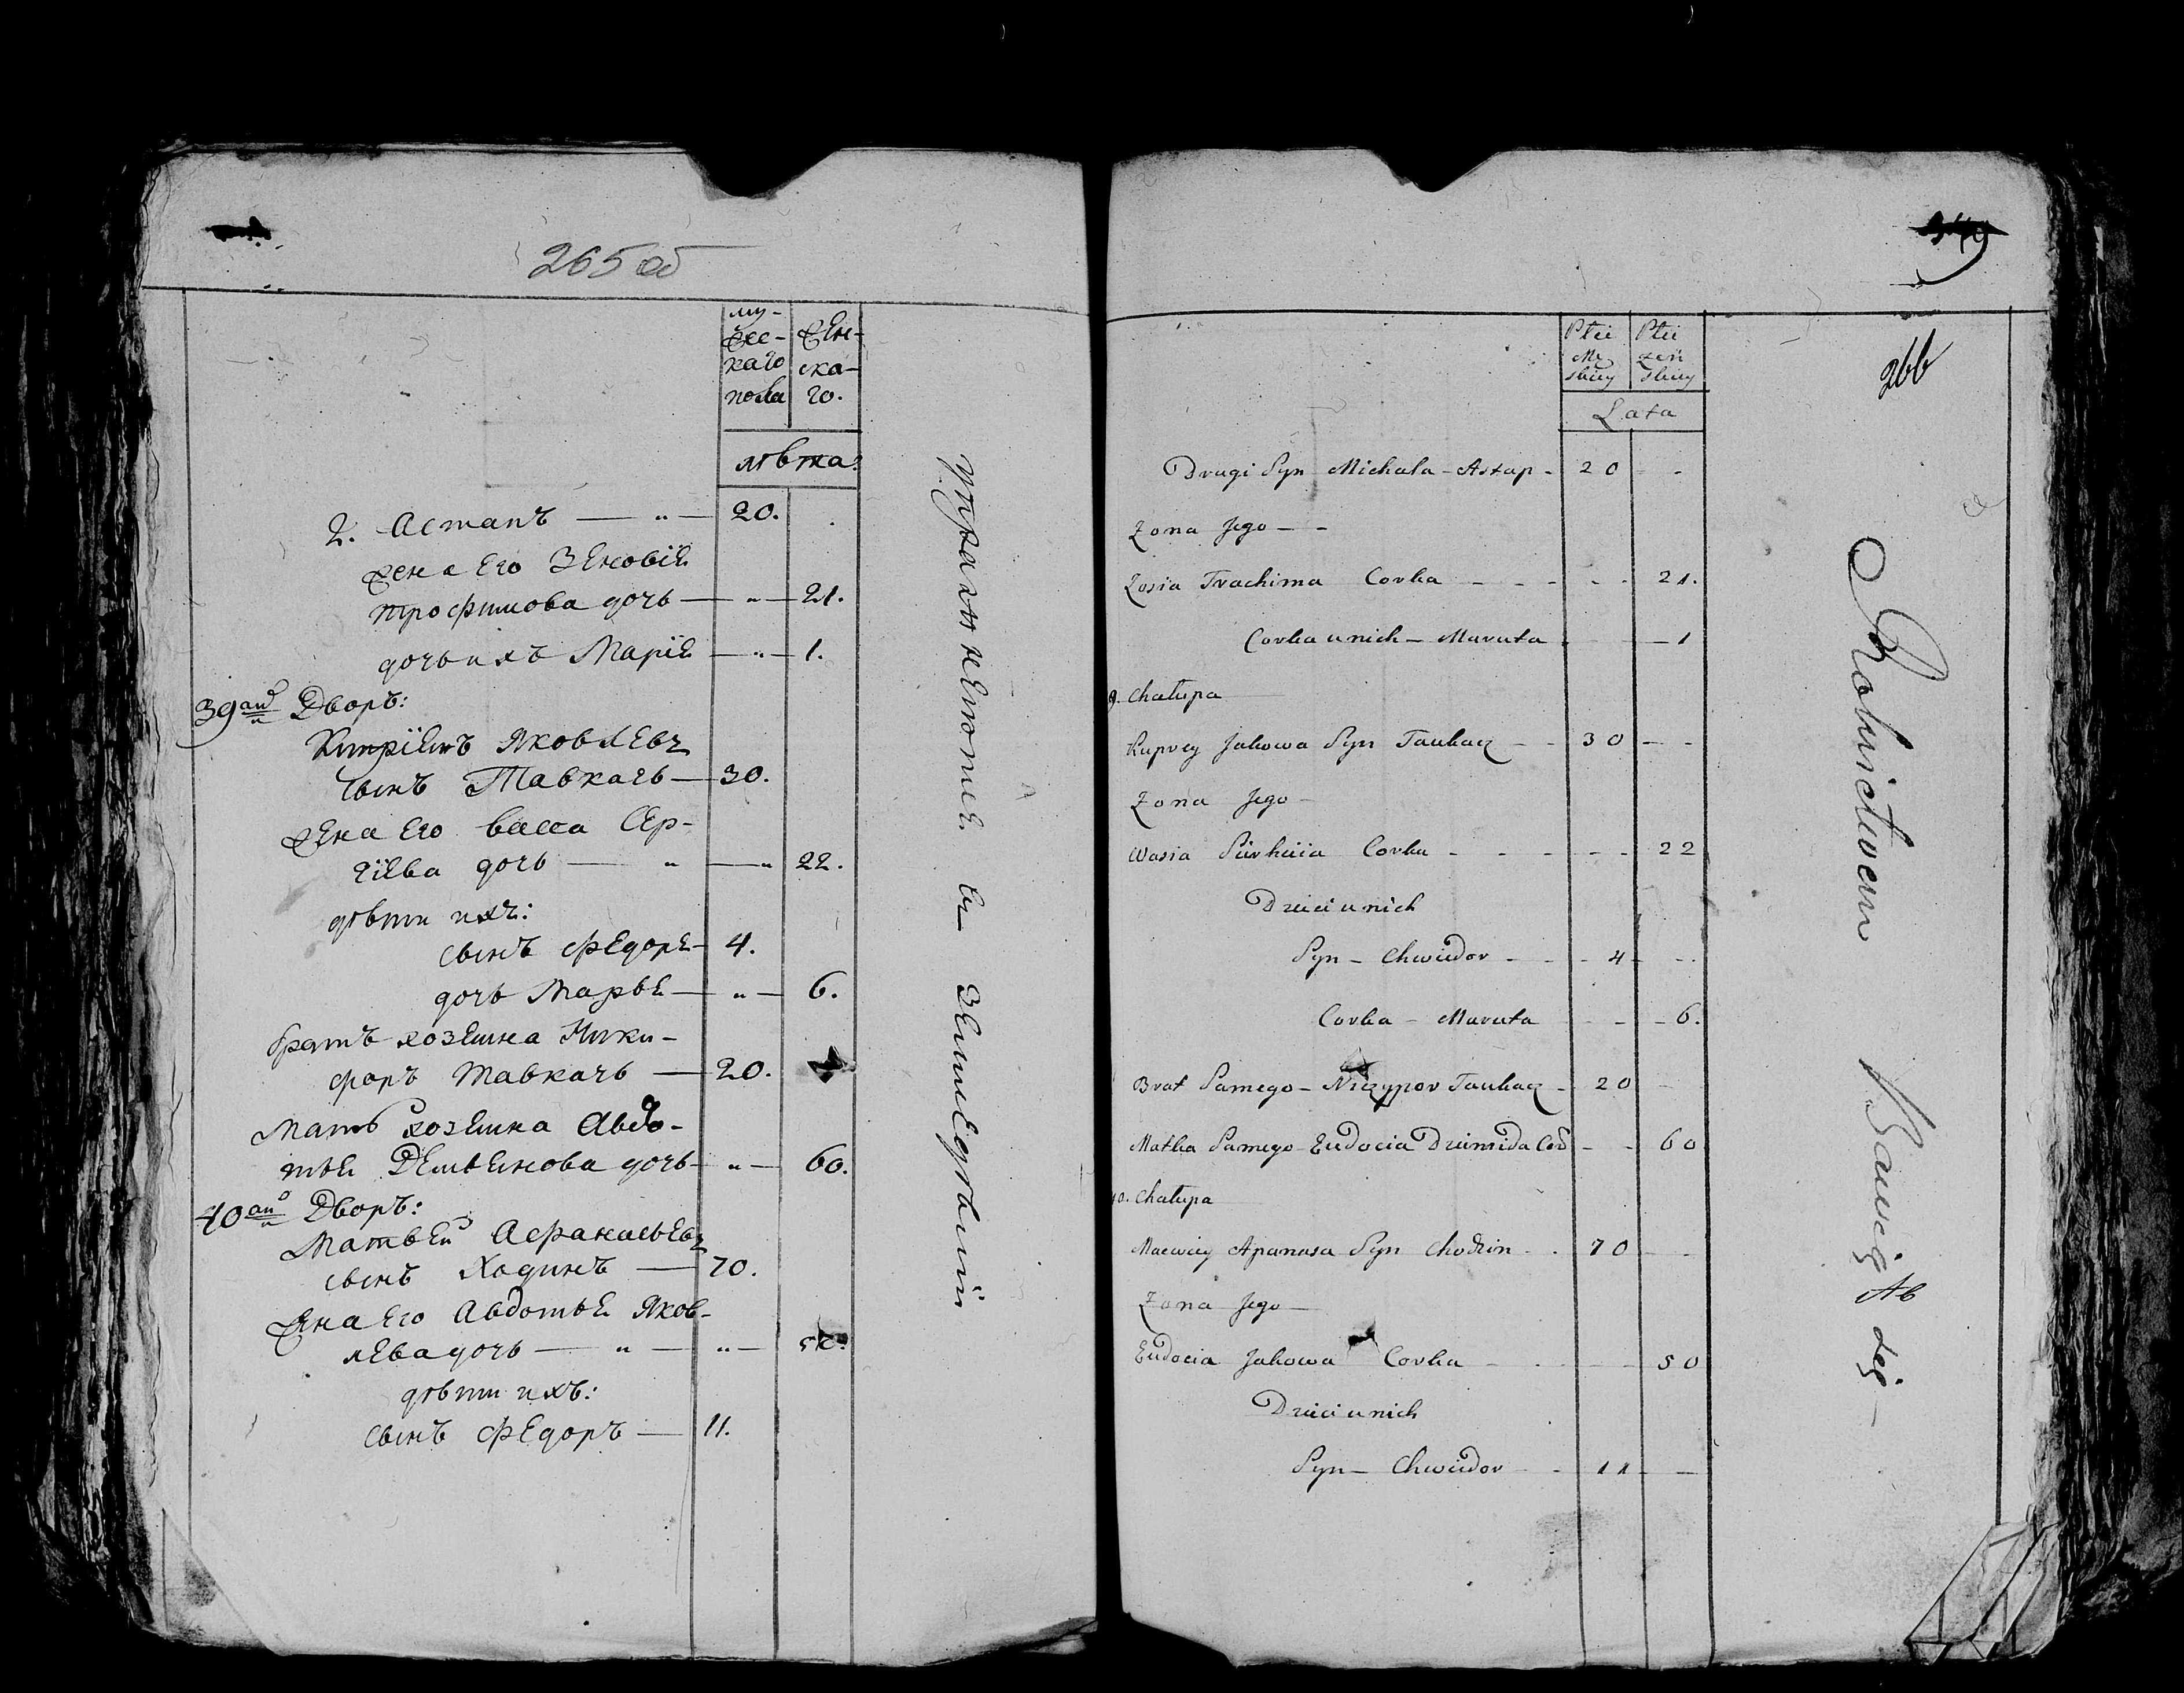 265 об
му-
жес-
каго
пола
жен-
ска-
го.
лѣта:
2. Астапъ — " — 20.
жена его Зеновія
трофимова дочь — " — 21.
дочь ихъ Марія — " — 1.
39ай Дворъ:
Купріянъ Яковлевъ
сынъ Тавкачь — 30.
жена его васса Сер-
гіева дочь — " — " 22.
дѣти ихъ:
сынъ Федоръ — 4.
дочь Марья — " — 6.
братъ хозяина Ники-
форъ Тавкачь — 20.
Мать хозяина Авдо-
тья Демьянова дочь — " — 60.
40ай Дворъ:
Матвей Афанасьевъ
сынъ Ходинъ — 70.
жена его Авдотья Яков-
лева дочь — " — " — 50.
дѣти ихъ:
сынъ Федоръ — 11.
Упражненіе въ земледѣліи
349
266
Płci
Mę
skiey
Płci
żeń
skiey
Lata
Drugi Syn Michała - Astap - 20 - -
Zona Jego - -
Zosia Trachima Corka - - - - - 21.
Corka u nich - Maruta - - 1
9. Chałupa
Kuprey Jakowa Syn Taukacz - - 30 - -
Zona Jego -
Wasia Sierhieia Corka - - - - - 22
Dzieci u nich
Syn - Chwiedor - - - 4 - -
Corka - Maruta - - - 6.
Brat Samego - Niczypor Taukacz - 20 -
Matka Samego - Eudocia Dziemida Cor - - 60
40. Chałupa
Maciey Apanasa Syn Chodzin - - 70 - -
Zona Jego -
Eudocia Jakowa Corka - - - - 50
Dzieci u nich
Syn - Chwiedor - - 11 - -
Rolnictwem Bawią się -